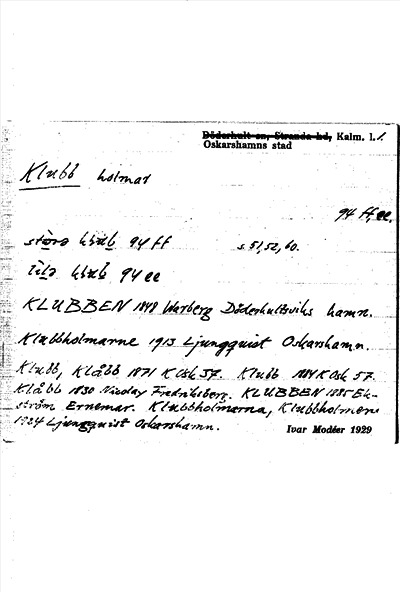 Döderhult sn, Stranda hd, Kalm. l.
Oskarshamns stad
Klubb holmar
94 ff, ee.
94 ff s. 51, 52, 60.
94 ee
KLUBBEN 1848 Warberg Döderhultsviks hamn.
Klubbholmarne 1913 Ljungquist Oskarshamn.
Klubb, Klåbb 1871 K Osk 57. Klubb 1884 K Osk 57.
Klåbb 1830 Nicolay Fredriksberg. KLUBBEN 1885 Ek-
ström Ernemar. Klubbholmarna, Klubbholmen
1924 Ljungquist Oskarshamn.
Ivar Modéer 1929